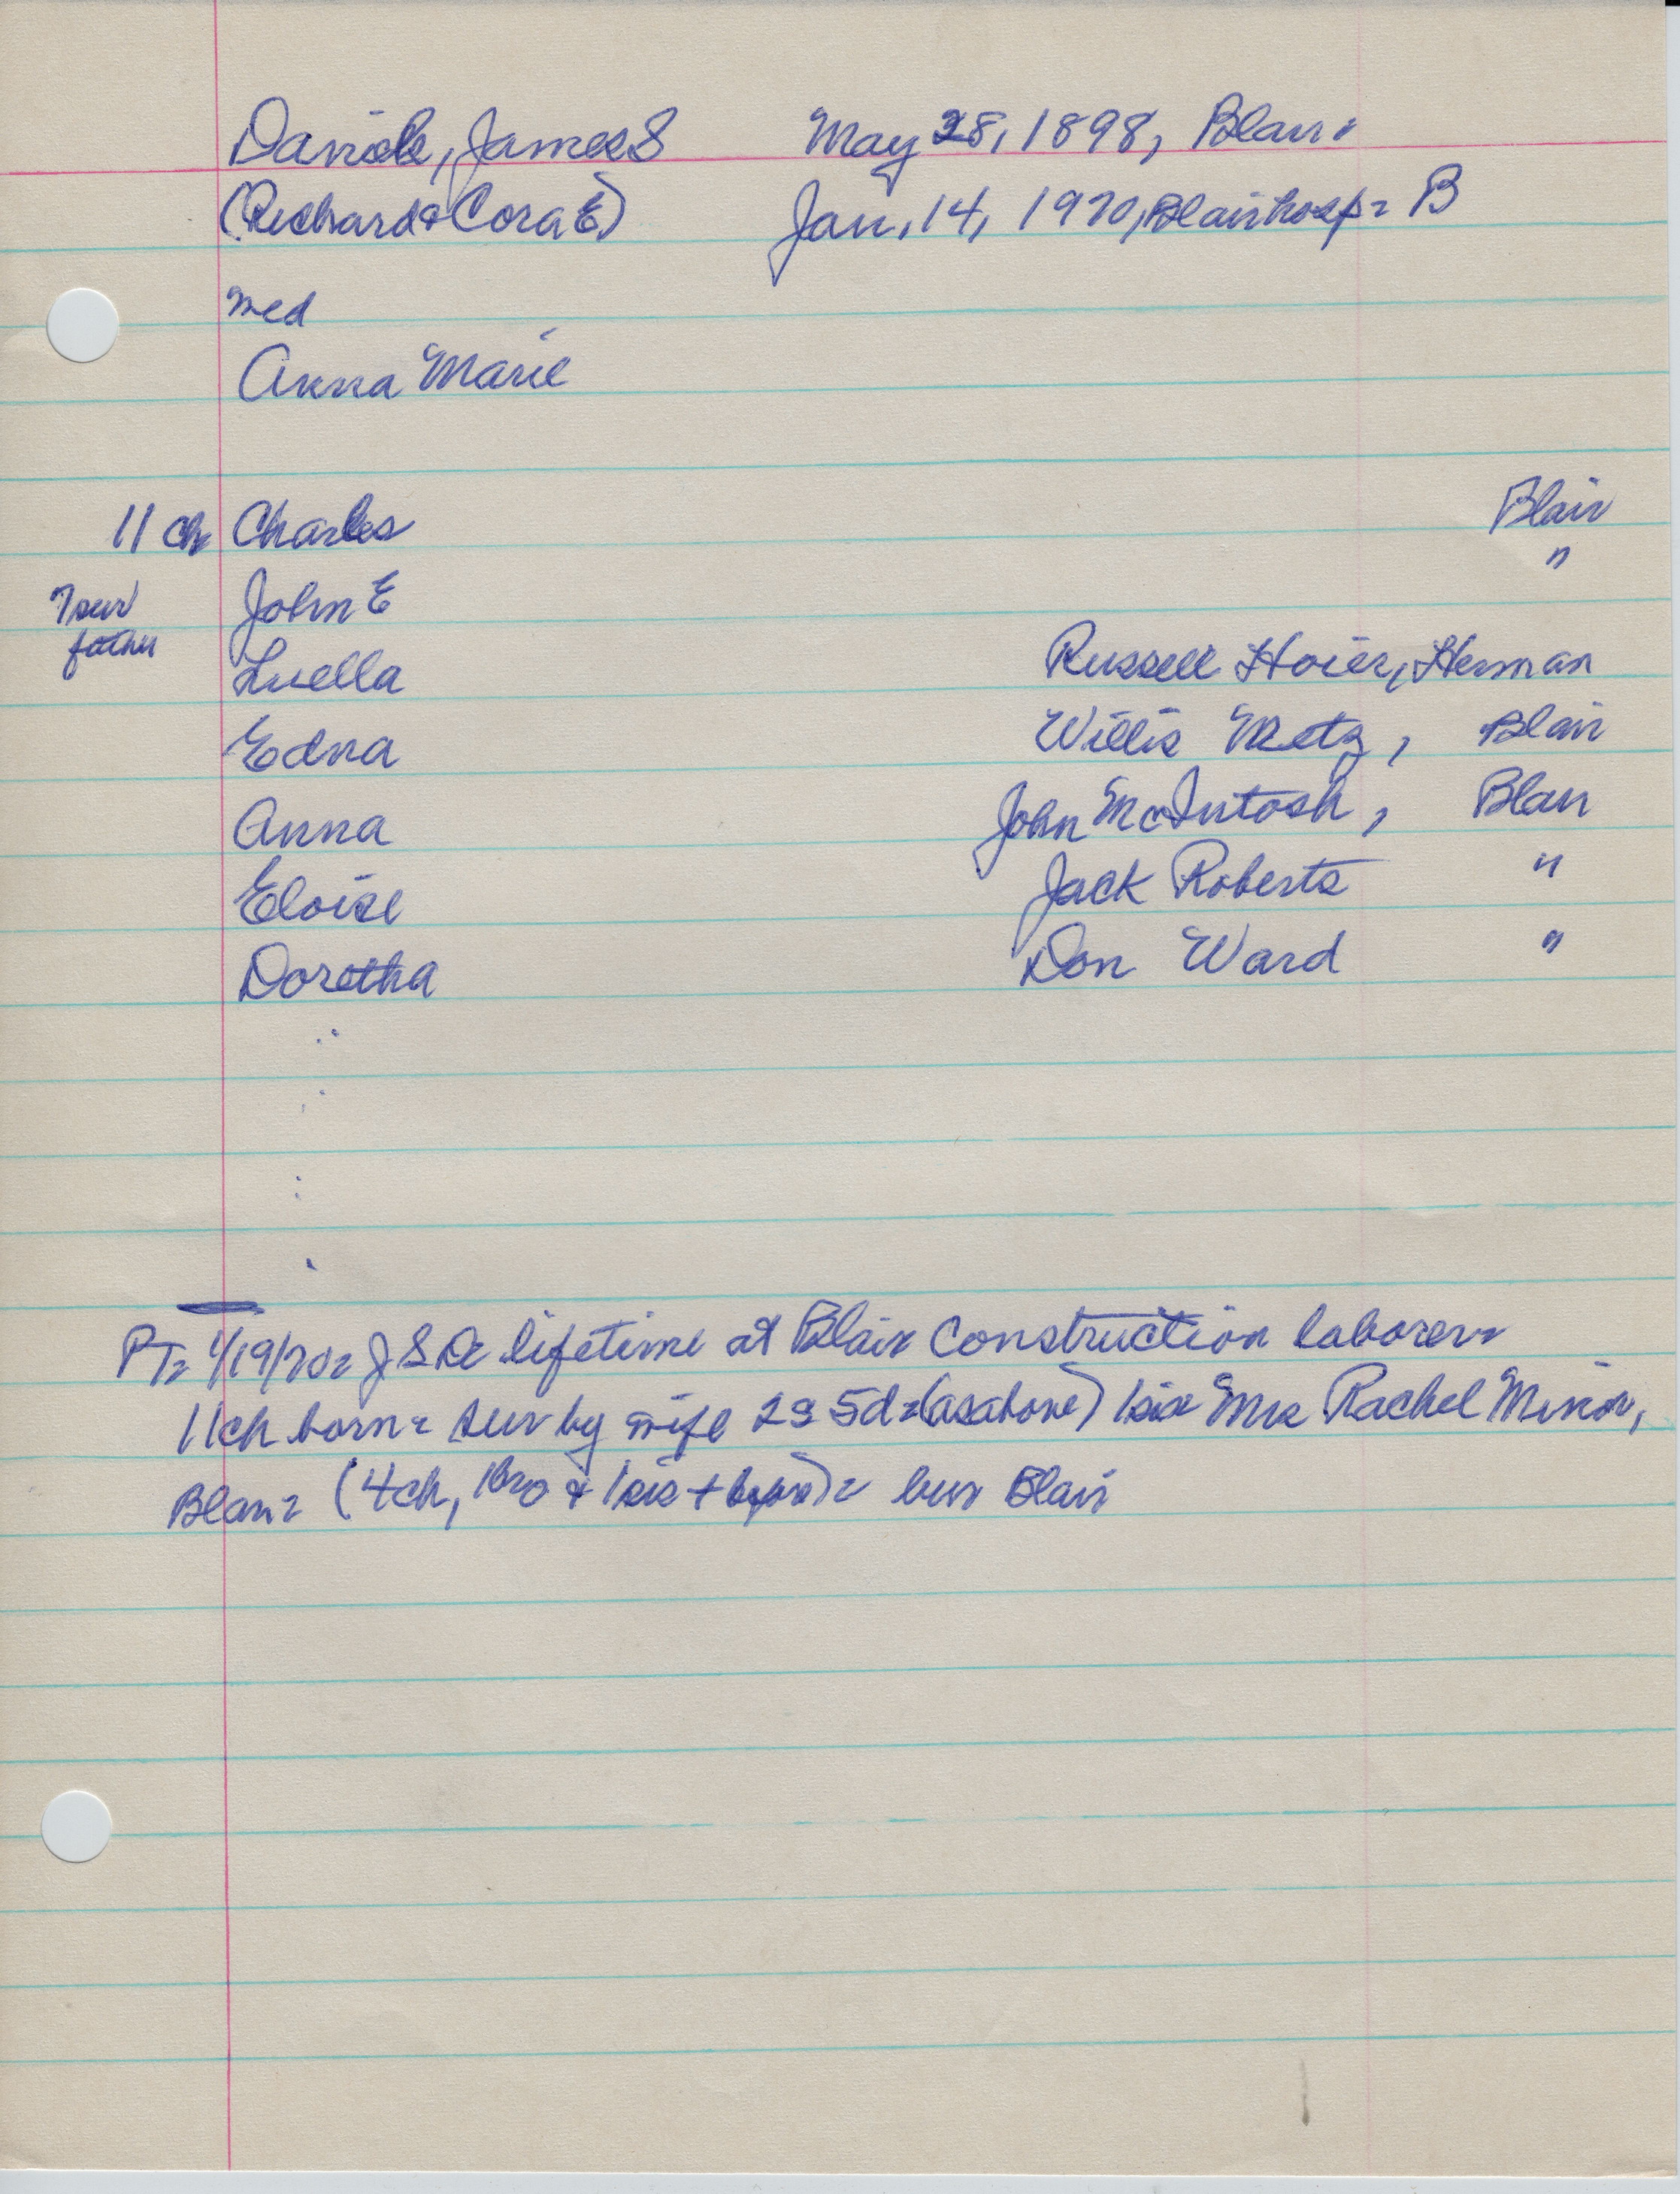 Daniels, James S May 28, 1898, Blair=
(Richard & Cora E) Jan. 14, 1970, Blair hosp= B
med
Anna Marie
11 ch Charles Blair
7 sur John E "
father
Luella Russell Hoier, Herman
Edna Willis Metz, Blair
Anna John McIntosh, Blair
Eloise Jack Roberts "
Doretha Don Ward "
PT= 1/19/70= J S D lifetime at Blair Construction laborer=
11 ch born= sur by wife 2s 5d= (as above) 1 sis Mrs Rachel Minor,
Blair= (4 ch, 1 bro & 1 sis + ) = bur Blair